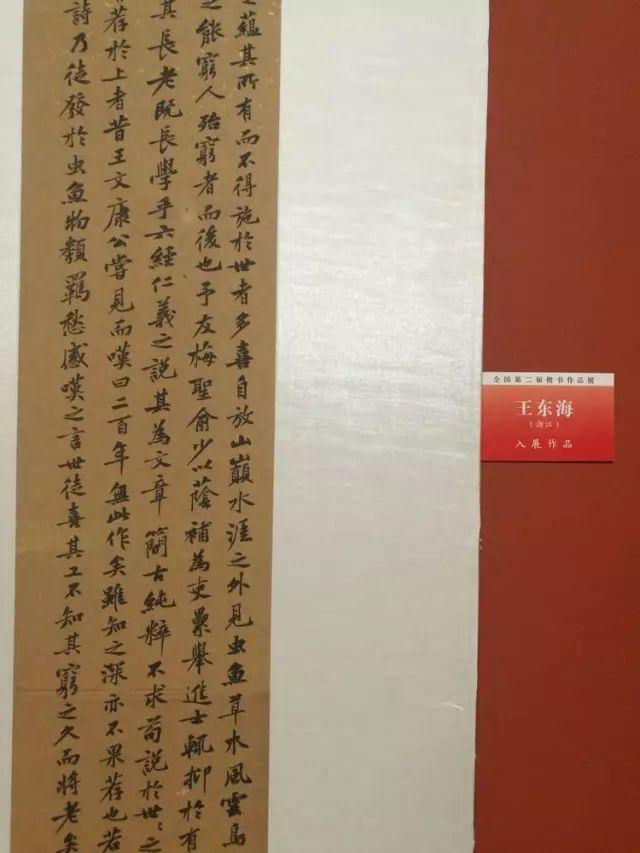 蘊其所有而不得施於世者多喜自放山巔水涯之外見虫魚草木風雲鳥
之能窮人殆窮者而後也予友梅聖俞少以蔭補為吏累舉進士輒抑於有
其長老既長學乎六經仁義之說其為文章簡古純粹不求苟說於世〻之
荐於上者昔王文康公嘗見而嘆曰二百年無此作矣雖知之深亦不果荐也若
詩乃徒發於虫魚物類羈愁感嘆之言世徒喜其工不知其窮之久而將老矣
全国第二届楷书作品展
王东海
（浙江）
入展作品